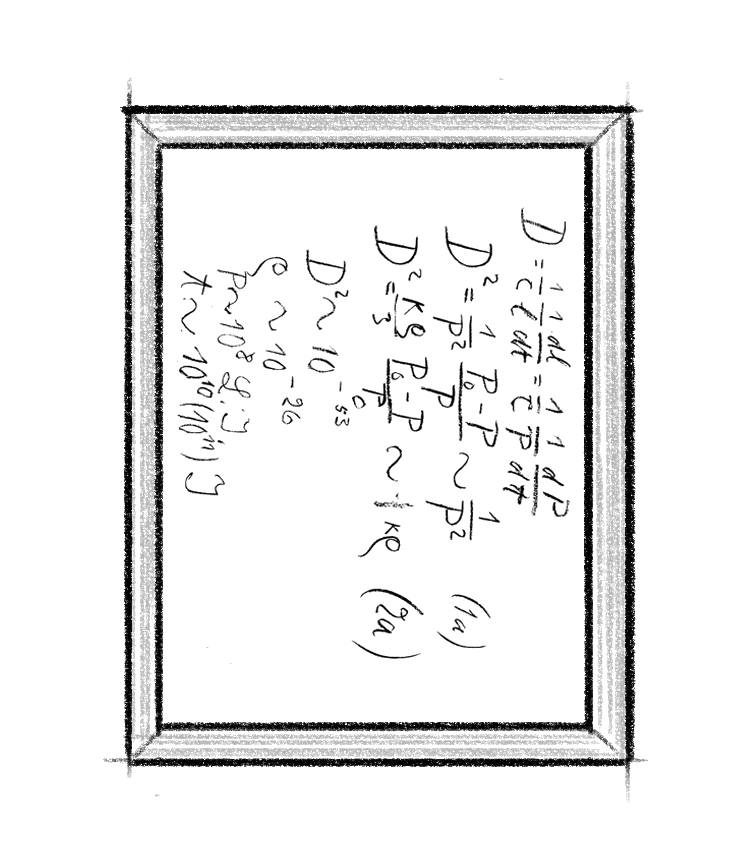 D = 1/c 1/l dl/dt = 1/c 1/P dP/dt
D² = 1/P² P₀-P/P ~ 1/P² (1a)
D² = κρ/3 P₀-P/P ~ 1/3 κρ (2a)
D² ~ 10⁻⁵³
ρ ~ 10⁻²⁶
P ~ 10⁸ L.J
t ~ 10¹⁰(10¹¹) J